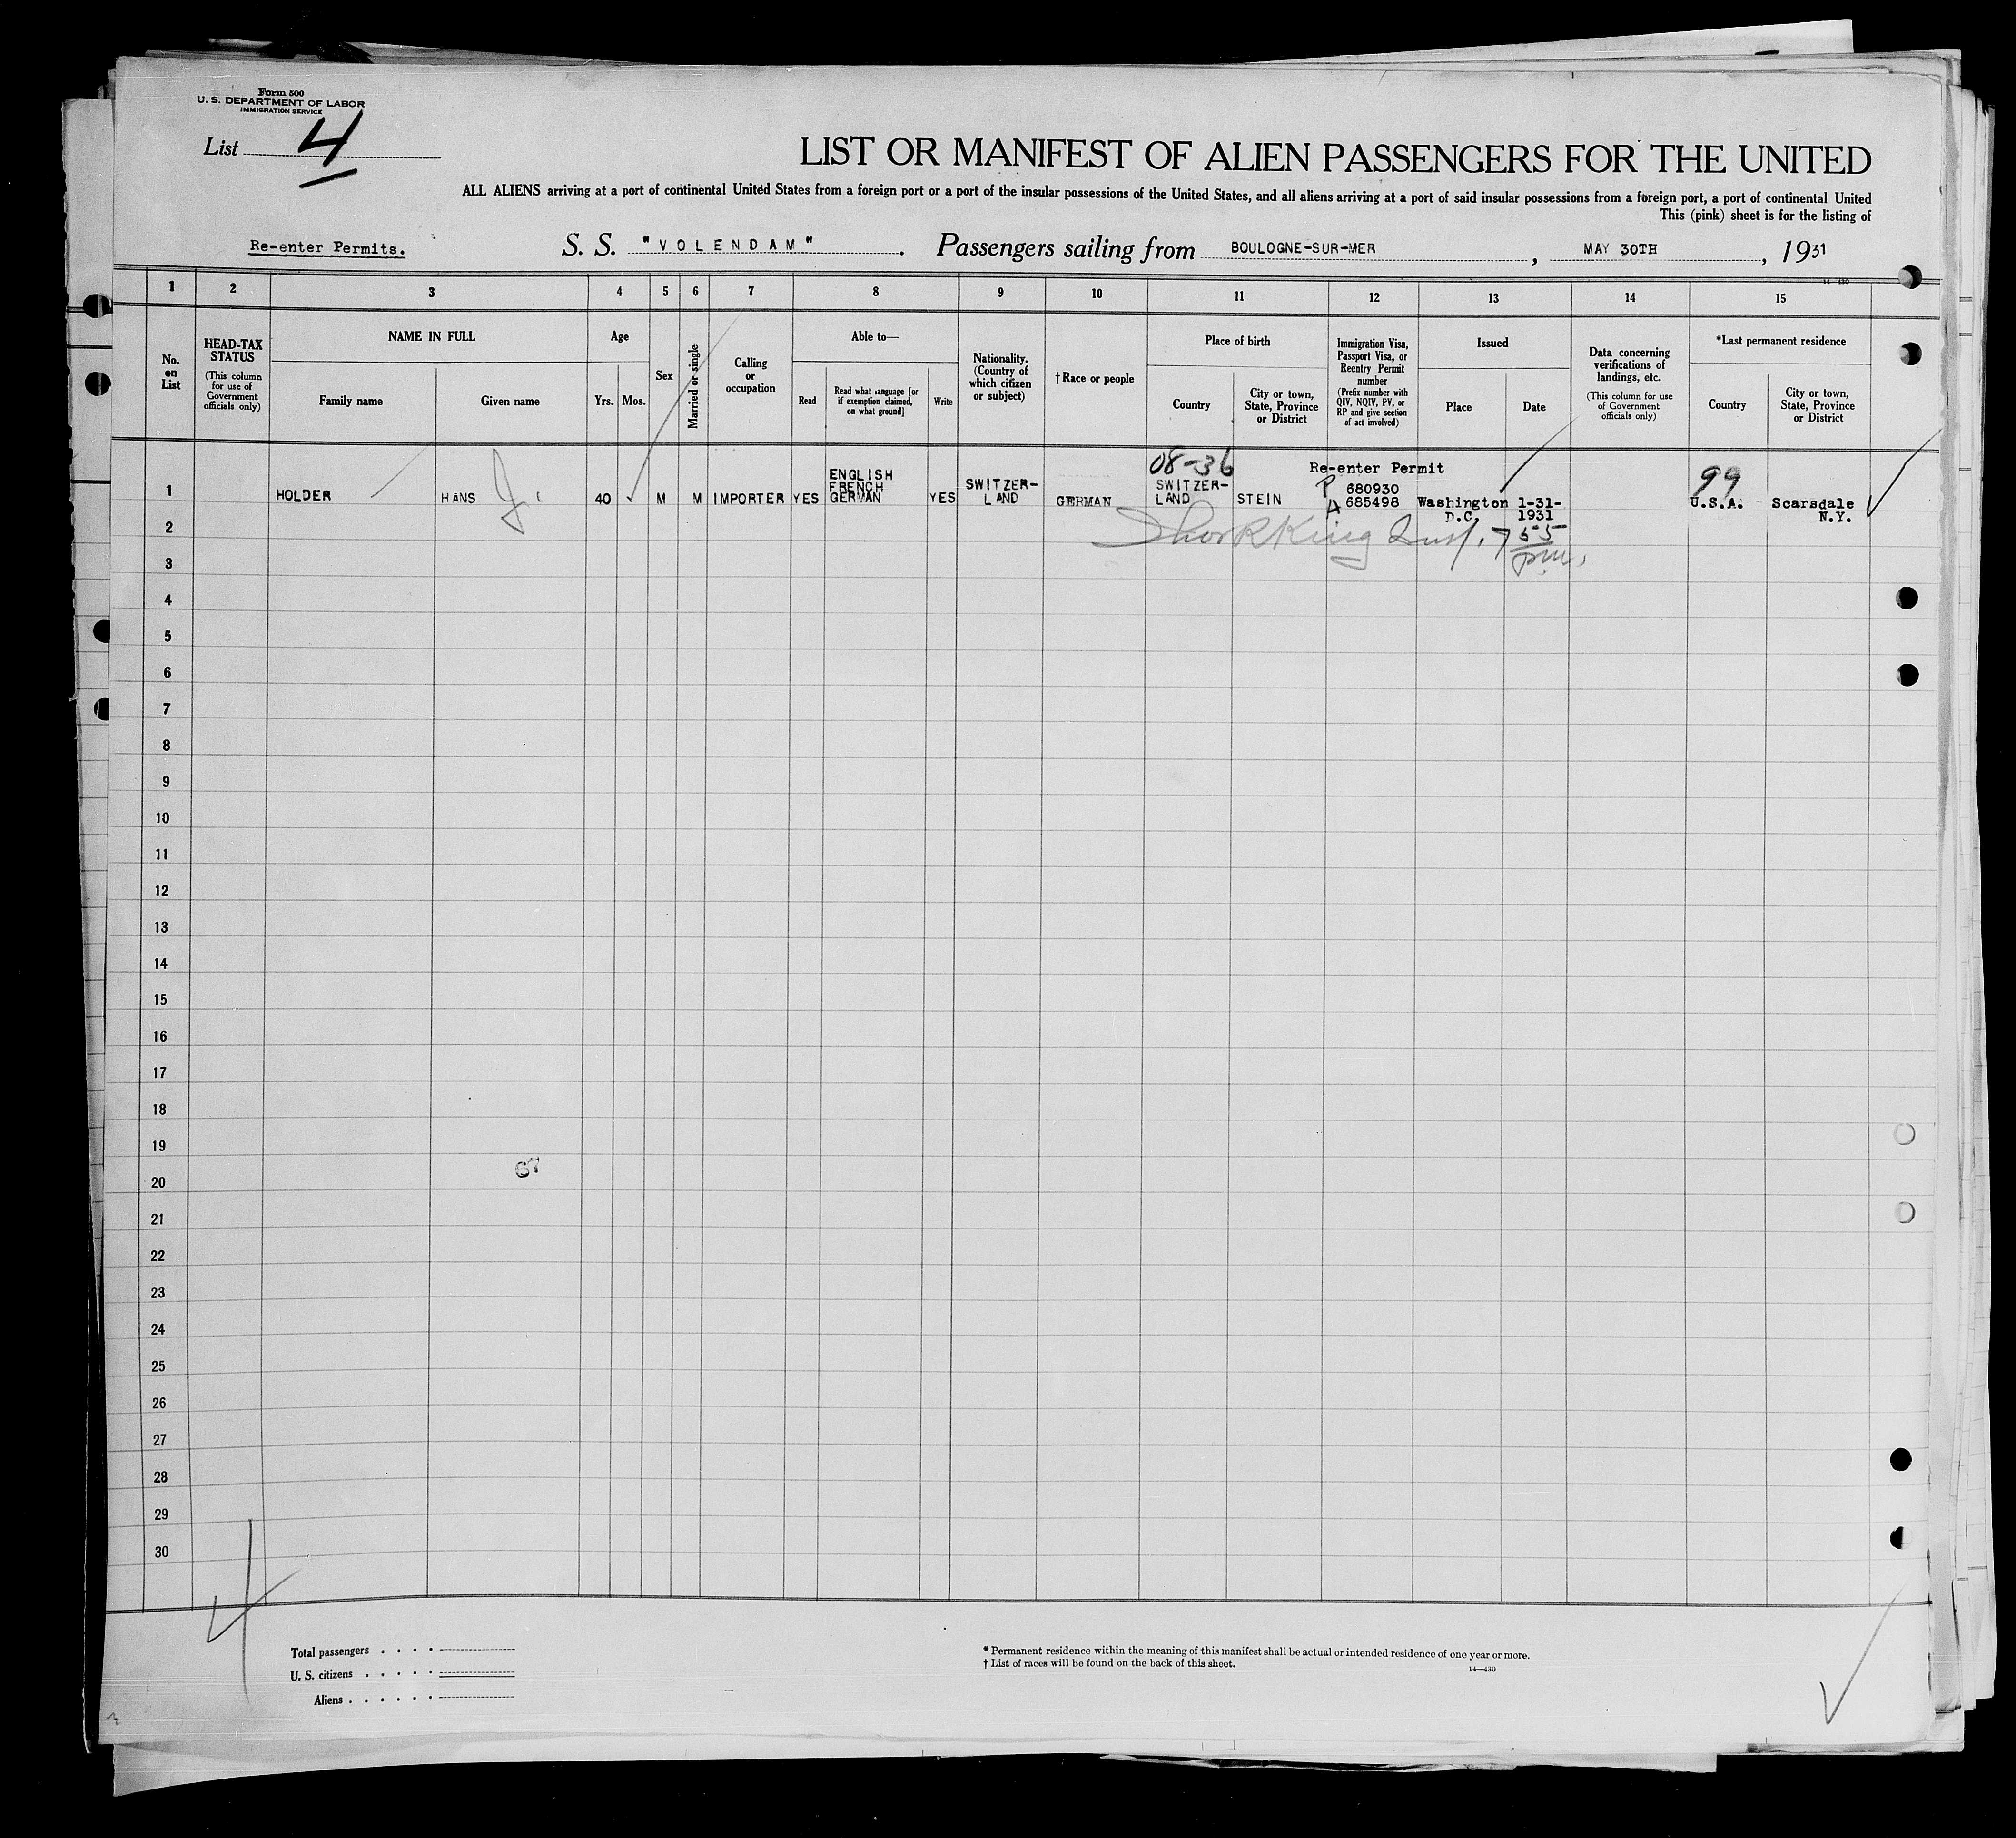 Form 500
U. S. DEPARTMENT OF LABOR
IMMIGRATION SERVICE
List 4
LIST OR MANIFEST OF ALIEN PASSENGERS FOR THE UNITED
ALL ALIENS arriving at a port of continental United States from a foreign port or a port of the insular possessions of the United States, and all aliens arriving at a port of said insular possessions from a foreign port, a port of continental United
This (pink) sheet is for the listing of
Re-enter Permits. S. S. "VOLENDAM". Passengers sailing from BOULOGNE-SUR-MER, MAY 30TH, 1931
14—430
1 2 3 4 5 6 7 8 9 10 11 12 13 14 15
No. on List
HEAD-TAX STATUS
(This column for use of Government officials only)
NAME IN FULL
Family name
Given name
Age
Yrs.
Mos.
Sex
Married or single
Calling or occupation
Able to—
Read
Read what language [or if exemption claimed, on what ground]
Write
Nationality. (Country of which citizen or subject)
†Race or people
Place of birth
Country
City or town, State, Province or District
Immigration Visa, Passport Visa, or Reentry Permit number
(Prefix number with QIV, NQIV, PV, or RP and give section of act involved)
Issued
Place
Date
Data concerning verifications of landings, etc.
(This column for use of Government officials only)
*Last permanent residence
Country
City or town, State, Province or District
08-36
Re-enter Permit
99
1 HOLDER HANS J. 40 M M IMPORTER YES ENGLISH FRENCH GERMAN YES SWITZER-LAND GERMAN SWITZER-LAND STEIN P 680930 A 685498 Washington D.C. 1-31-1931 U.S.A. Scarsdale N.Y.
2
King Insp. 7 55 pm.
3
4
5
6
7
8
9
10
11
12
13
14
15
16
17
18
19
20
21
22
23
24
25
26
27
28
29
30
4
Total passengers . . . .
U. S. citizens . . . . .
Aliens . . . . . .
* Permanent residence within the meaning of this manifest shall be actual or intended residence of one year or more.
† List of races will be found on the back of this sheet.
14—430